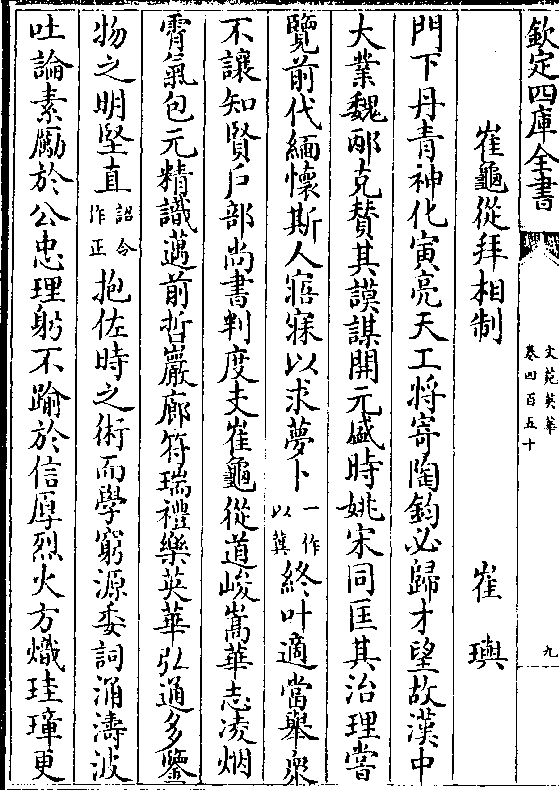 欽定四庫全書
文苑英華
卷四百五十
九
崔龜從拜相制
崔璵
門下丹青神化寅亮天工將寄陶鈞必歸才望故漢中
大業魏邴克賛其謨謀開元盛時姚宋同匡其治理嘗
覽前代緬懷斯人寤寐以求夢卜一作以冀終叶適當舉衆
不讓知賢户部尚書判度支崔龜從道峻嵩華志凌烟
霄氣包元精識邁前哲巖廊符瑞禮樂英華弘通多鑒
物之明堅直詔令作正抱佐時之術而學窮源委詞涌濤波
吐論素勵於公忠理躬不踰於信厚烈火方熾珪璋更